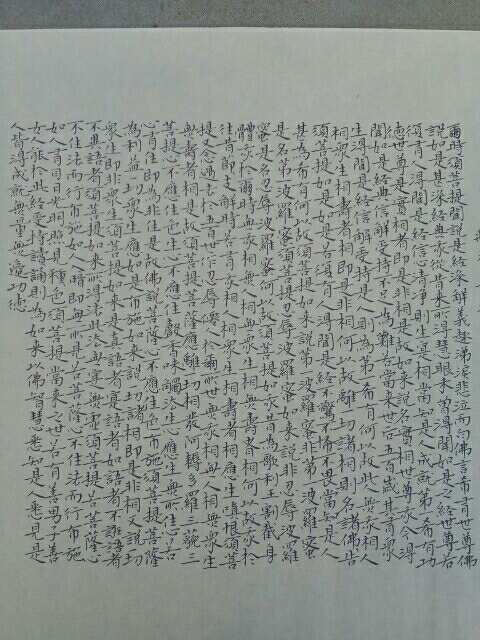 爾時須菩提聞說是經深解義趣涕淚悲泣而白佛言希有世尊佛
說如是甚深經典我從昔來所得慧眼未曾得聞如是之經世尊若
復有人得聞是經信心清淨則生實相當知是人成就第一希有功
德世尊是實相者即是非相是故如來說名實相世尊我今得
聞如是經典信解受持不足為難若當來世後五百歲其有眾
生得聞是經信解受持是人則為第一希有何以故此人無我相人
相眾生相壽者相即是非相何以故離一切諸相則名諸佛佛告
須菩提如是如是若復有人得聞是經不驚不怖不畏當知是人
甚為希有何以故須菩提如來說第一波羅蜜非第一波羅蜜
是名第一波羅蜜須菩提忍辱波羅蜜如來說非忍辱波羅
蜜是名忍辱波羅蜜何以故須菩提如我昔為歌利王割截身
體我於爾時無我相無人相無眾生相無壽者相何以故我於
往昔節節支解時若有我相人相眾生相壽者相應生瞋恨須菩
提又念過去於五百世作忍辱僊人於爾所世無我相無人相無眾生
無壽者相是故須菩提菩薩應離一切相發阿耨多羅三藐三
菩提心不應住色生心不應住聲香味觸法生心應生無所住心若
心有住即為非住是故佛說菩薩心不應住色布施須菩提菩薩
為利益一切眾生應如是布施如來說一切諸相即是非相又說一切
眾生即非眾生須菩提如來是真語者實語者如語者不誑語者
不異語者須菩提如來所得法此法無實無虛須菩提若菩薩心
不住法而行布施如人入暗即無所見若菩薩心不住法而行布施
如人有目日光明照見種種色須菩提當來之世若有善男子善
女人能於此經受持讀誦則為如來以佛智慧悉知是人悉見是
人皆得成就無量無邊功德